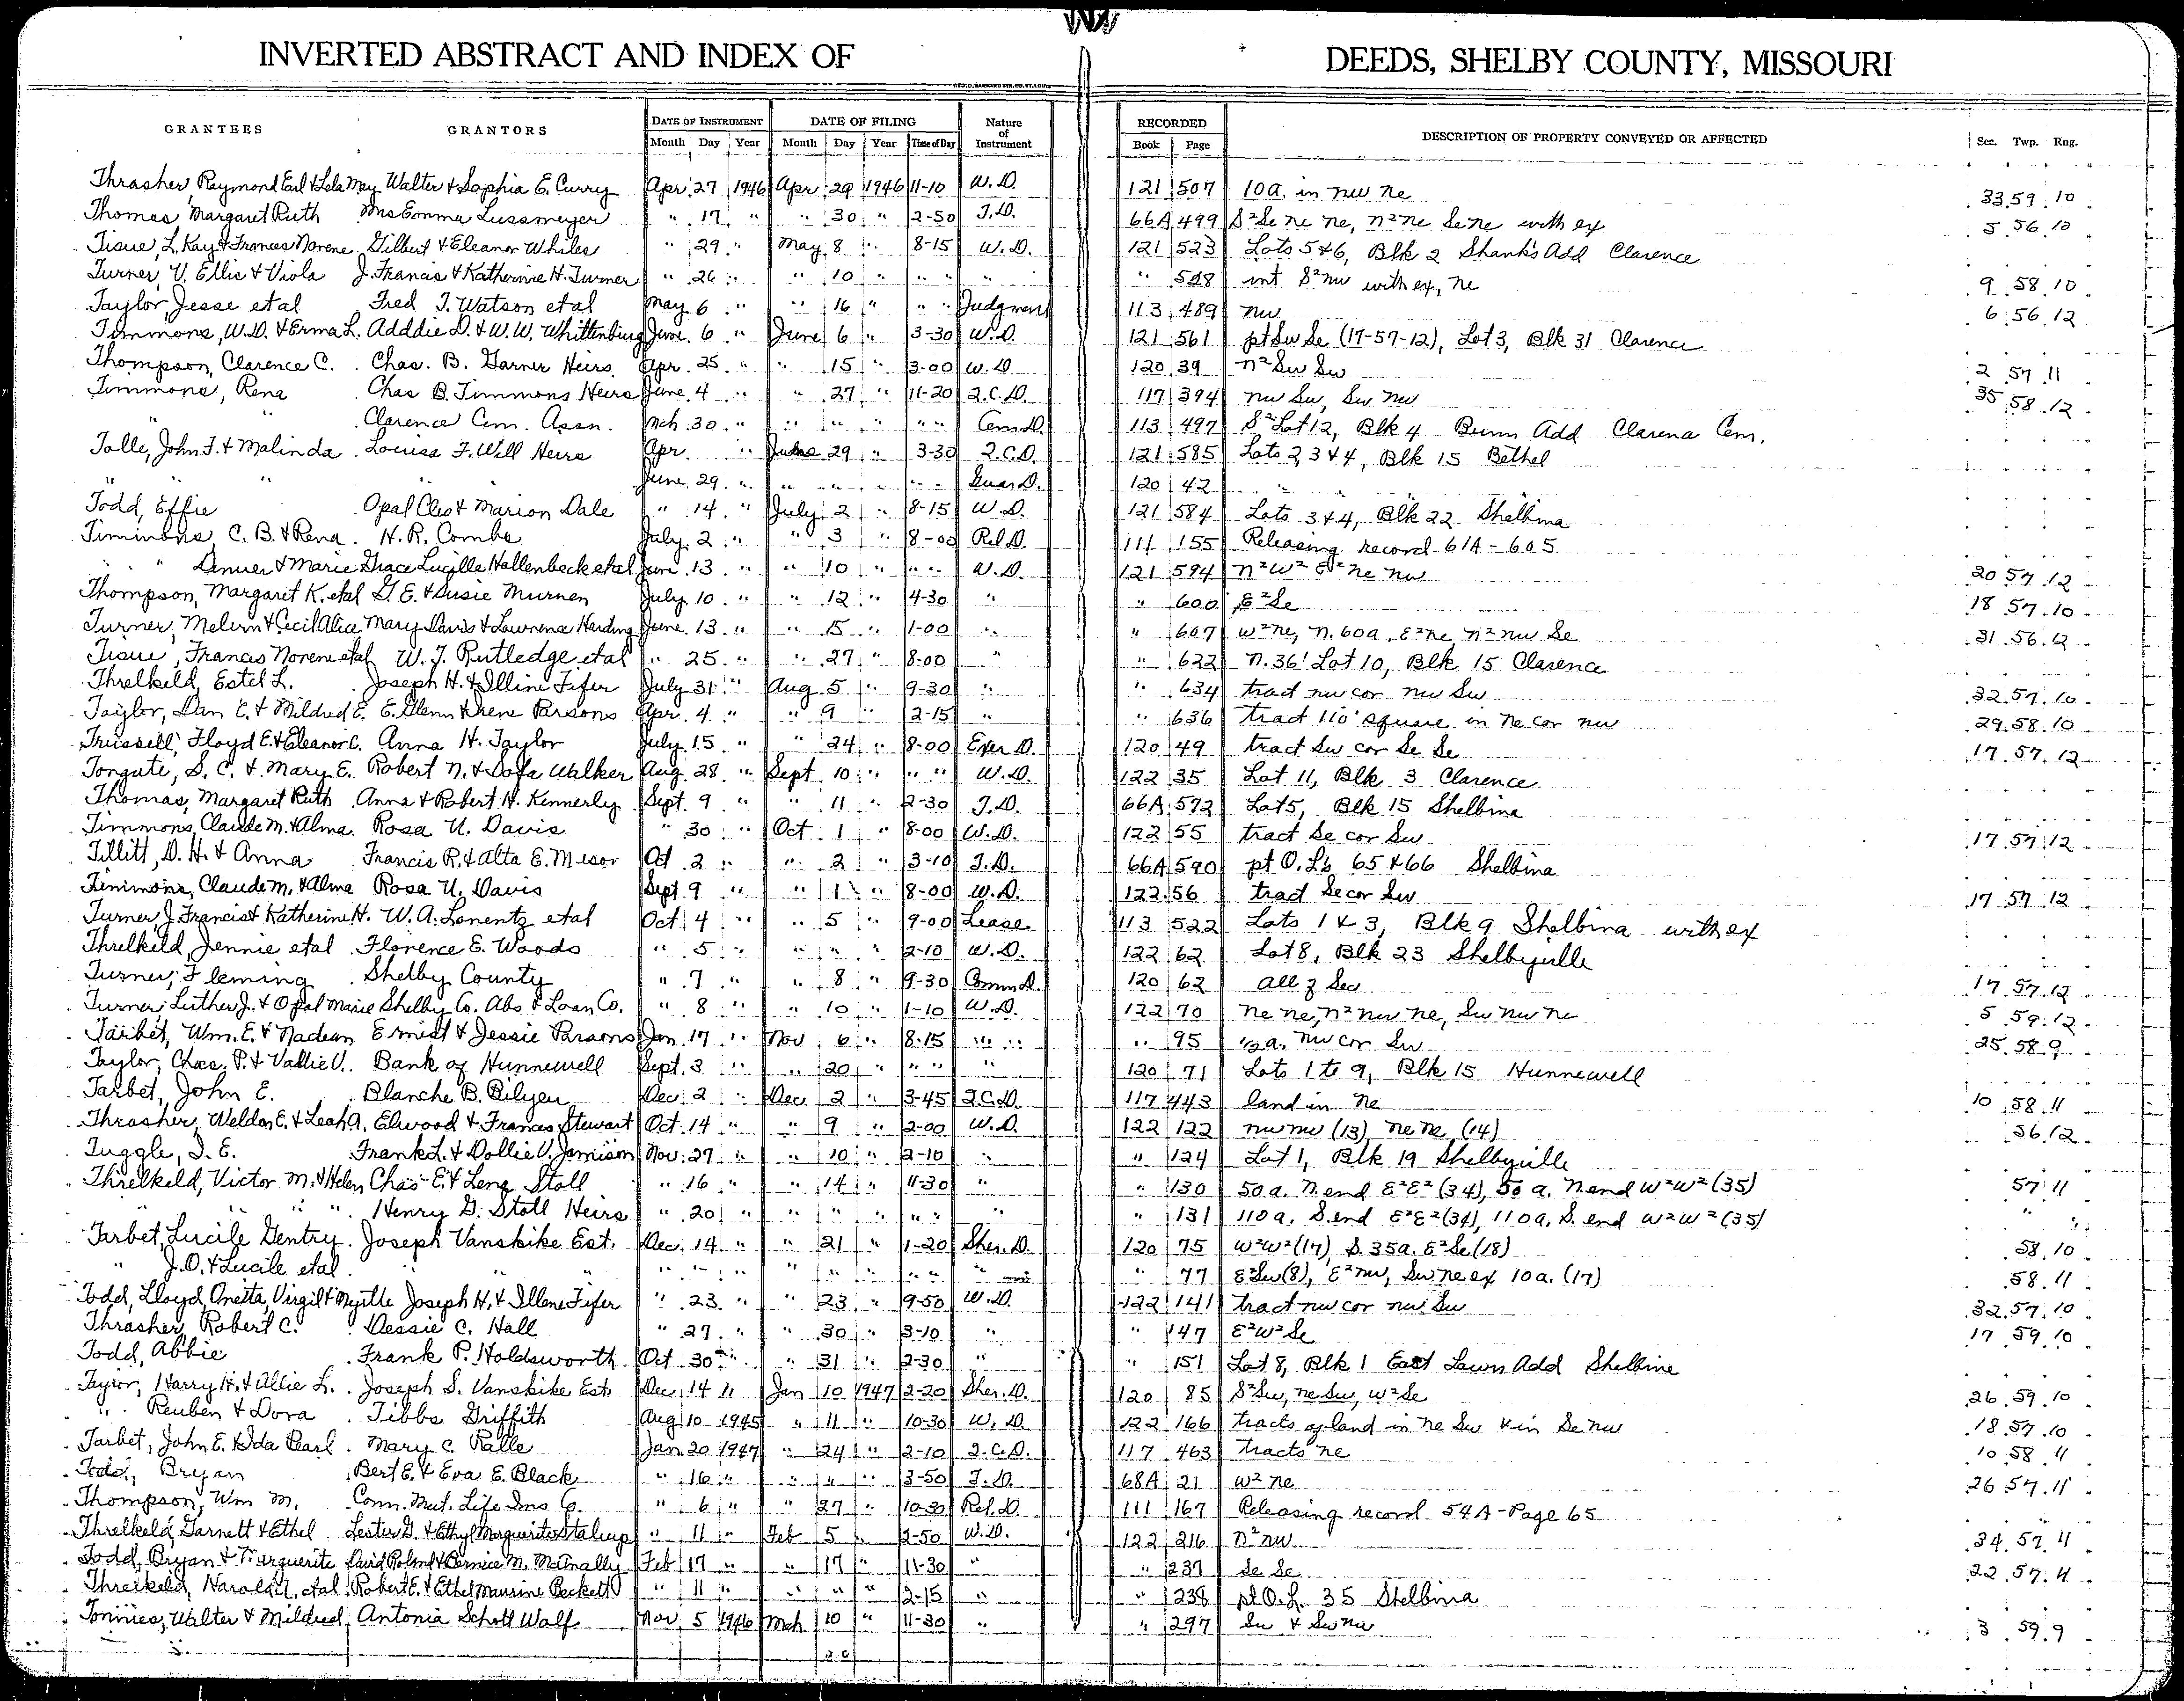 INVERTED ABSTRACT AND INDEX OF DEEDS, SHELBY COUNTY, MISSOURI
GRANTEES GRANTORS DATE OF INSTRUMENT DATE OF FILING Nature of Instrument RECORDED DESCRIPTION OF PROPERTY CONVEYED OR AFFECTED Sec. Twp. Rng.
Month Day Year Month Day Year Time of Day Book Page
Thrasher, Raymond Earl & Lela May Walter & Sophia E. Curry Apr 27 1946 Apr 29 1946 11-10 W.D. 121 507 10a. in nw ne 33 59 10
Thomas, Margaret Ruth Mrs Emma Lussmeyer " 17 " " 30 " 2-50 T.D. 66A 499 S²Se ne ne, n²ne Se ne with ex 5 56 10
Tisue, L. Kay & Frances Norene Gilbert & Eleanor Whiles " 29 " May 8 " 8-15 W.D. 121 523 Lots 5&6, Blk 2 Shank's Add Clarence
Turner, V. Ellis & Viola J. Francis & Katherine H. Turner " 26 " " 10 " " " " " 528 int S²nw with ex, ne 9 58 10
Taylor, Jesse et al Fred T. Watson et al May 6 " " 16 " " " Judgment 113 489 nw 6 56 12
Timmons, W.D. & Erma L. Adddie D. & W.W. Whittenburg June 6 " June 6 " 3-30 W.D. 121 561 pt Sw Se (17-57-12), Lot 3, Blk 31 Clarence
Thompson, Clarence C. Chas. B. Garner Heirs Apr. 25 " " 15 " 3-00 W.D. 120 39 n²Sw Sw 2 57 11
Timmons, Rena Chas B. Timmons Heirs June 4 " " 27 " 11-20 Q.C.D. 117 394 nw Sw, Sw nw 35 58 12
" " Clarence Cem. Assn. Mch 30 " " " " " " Cem.D. 113 497 S²Lot 12, Blk 4 Bunn Add Clarence Cem.
Tolle, John F. & Malinda Louisa F. Will Heirs Apr. " June 29 " 3-30 Q.C.D. 121 585 Lots 2, 3 & 4, Blk 15 Bethel
" " " June 29 " " " " " " Guar D. 120 42 "
Todd, Effie Opal Cleo & Marion Dale " 14 " July 2 " 8-15 W.D. 121 584 Lots 3 & 4, Blk 22 Shelbina
Timmons, C. B. & Rena H. R. Combs July 2 " " 3 " 8-00 Rel D. 111 155 Releasing record 61A-605
" Denver & Marie Grace Lucille Hollenbeck et al June 13 " " 10 " " " W.D. 121 594 n²W² E²ne nw 20 57 12
Thompson, Margaret K. et al G. E. & Susie Murnen July 10 " " 12 " 4-30 " " 600 E²Se 18 57 10
Turner, Melvin & Cecil Alice Mary Davis & Lawrence Harding June 13 " " 15 " 1-00 " " 607 w²ne, n. 60a. E²ne n²nw Se 31 56 12
Tisue, Frances Norene et al W. J. Rutledge et al " 25 " " 27 " 8-00 " " 622 n. 36' Lot 10, Blk 15 Clarence
Threlkeld, Estel L. Joseph H. & Illine Fifer July 31 " Aug 5 " 9-30 " " 634 tract nw cor nw Sw 32 57 10
Taylor, Dan E. & Mildred E. E. Glenn & Irene Parsons Apr. 4 " " 9 " 2-15 " " 636 tract 110' square in ne cor nw 29 58 10
Trussell, Floyd E. & Eleanor C. Anna H. Taylor July 15 " " 24 " 8-00 Exer D. 120 49 tract Sw cor Se Se 17 57 12
Tongate, S. C. & Mary E. Robert N. & Dofa Walker Aug. 28 " Sept. 10 " " " W.D. 122 35 Lot 11, Blk 3 Clarence
Thomas, Margaret Ruth Anna & Robert H. Kennerly Sept. 9 " " 11 " 2-30 T.D. 66A 572 Lot 5, Blk 15 Shelbina
Timmons, Claude M. & Alma Rosa U. Davis " 30 " Oct. 1 " 8-00 W.D. 122 55 tract Se cor Sw 17 57 12
Tillitt, D. H. & Anna Francis R. & Alta E. Misor Oct 2 " " 2 " 3-10 T.D. 66A 590 pt O. L's 65 & 66 Shelbina
Timmons, Claude M. & Alma Rosa U. Davis Sept. 9 " " 1 " 8-00 W.D. 122 56 tract Se cor Sw 17 57 12
Turner J. Francis & Katherine H. W. A. Lorentz et al Oct. 4 " " 5 " 9-00 Lease 113 522 Lots 1 & 3, Blk 9 Shelbina with ex
Threlkeld, Jennie et al Florence E. Woods " 5 " " " " 2-10 W.D. 122 62 Lot 8, Blk 23 Shelbyville
Turner, Fleming Shelby County " 7 " " 8 " 9-30 Comm D. 120 62 all of Sec 17 57 12
Turner, Luther J. & Opal Marie Shelby Co. Abs & Loan Co. " 8 " " 10 " 1-10 W.D. 122 70 ne ne, n²nw ne, Sw nw ne 5 59 12
Tarbet, Wm. E. & Nadean Ernist & Jessie Parsons Jan. 17 " Nov 6 " 8-15 " " " 95 1/2 a. nw cor Sw 25 58 9
Taylor, Chas. P. & Vallie V. Bank of Hunnewell Sept. 3 " " 20 " " " " 120 71 Lots 1 to 9, Blk 15 Hunnewell
Tarbet, John E. Blanche B. Bilyeu Dec. 2 " Dec 2 " 3-45 Q.C.D. 117 443 land in ne 10 58 11
Thrasher, Weldon E. & Leah A. Elwood & Frances Stewart Oct. 14 " " 9 " 2-00 W.D. 122 122 nw nw (13) ne ne (14) 56 12
Tuggle, I. E. Frank L. & Dollie V. Jamison Nov. 27 " " 10 " 2-10 " " 124 Lot 1, Blk 19 Shelbyville
Threlkeld, Victor M. & Helen Chas E. & Lena Stoll " 16 " " 14 " 11-30 " " 130 50 a. N. end E²E² (34), 50 a. N end W²W² (35) 57 11
" " " " Henry G. Stoll Heirs " 20 " " " " " " " " 131 110a. S. end E²E² (34), 110a. S. end W²W² (35) " "
Tarbet, Lucile Gentry Joseph Vanskike Est. Dec. 14 " " 21 " 1-20 Sher. D. 120 75 W²W² (17) S. 35a. E²Se (18) 58 10
" J. O. & Lucile et al " " " " " " " " " " " " " 77 E²Sw (8), E²nw, Sw ne ex 10a. (17) 58 11
Todd, Lloyd, Oneita, Virgil & Myrtle Joseph H. & Illene Fifer " 23 " " 23 " 9-50 W.D. 122 141 tract nw cor nw Sw 32 57 10
Thrasher, Robert C. Dessie C. Hall " 27 " " 30 " 3-10 " " 147 E²W²Se 17 59 10
Todd, Abbie Frank P. Holdsworth Oct. 30 " " 31 " 2-30 " " 151 Lot 8, Blk 1 East Lawn Add Shelbina
Taylor, Harry H. & Allie L. Joseph S. Vanskike Est. Dec 14 " Jan 10 1947 2-20 Sher. D. 120 85 S²Sw, ne Sw, W²Se 26 59 10
" Reuben & Dora Tibbs Griffith Aug 10 1945 " 11 " 10-30 W.D. 122 166 tracts of land in ne Sw & in Se nw 18 57 10
Tarbet, John E. & Ida Pearl Mary C. Ralle Jan 20 1947 " 24 " 2-10 Q.C.D. 117 463 tracts ne 10 58 11
Todd, Bryan Bert E. & Eva E. Black " 16 " " " " 3-50 T.D. 68A 21 W² ne 26 57 11
Thompson, Wm M. Conn. Mut. Life Ins Co. " 6 " " 27 " 10-30 Rel. D. 111 167 Releasing record 54A-Page 65
Threlkeld, Garnett & Ethel Lester G. & Ethyl Marguerite Stalcup " 11 " Feb 5 " 2-50 W.D. 122 216 n²nw 34 57 11
Todd, Bryan & Marguerite David Roland & Bernice M. McAnally Feb 17 " " 17 " 11-30 " " 237 Se Se 22 57 11
Threlkeld, Harold U. et al Robert E. & Ethel Maurine Beckett " 11 " " " " 2-15 " " 238 pt O. L. 35 Shelbina
Tonnies, Walter & Mildred Antonia Schott Wolf Nov. 5 1946 Mch 10 " 11-30 " " 297 Sw & Sw nw 3 59 9